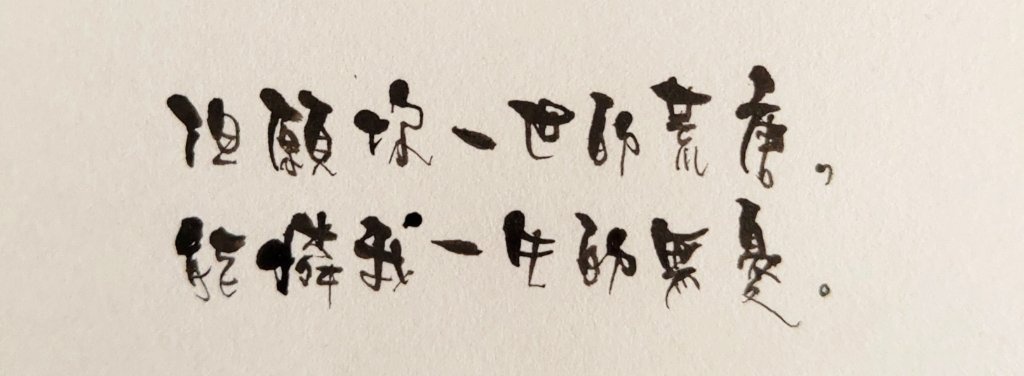 但願你一世的荒唐，
能憐我一生的無憂。